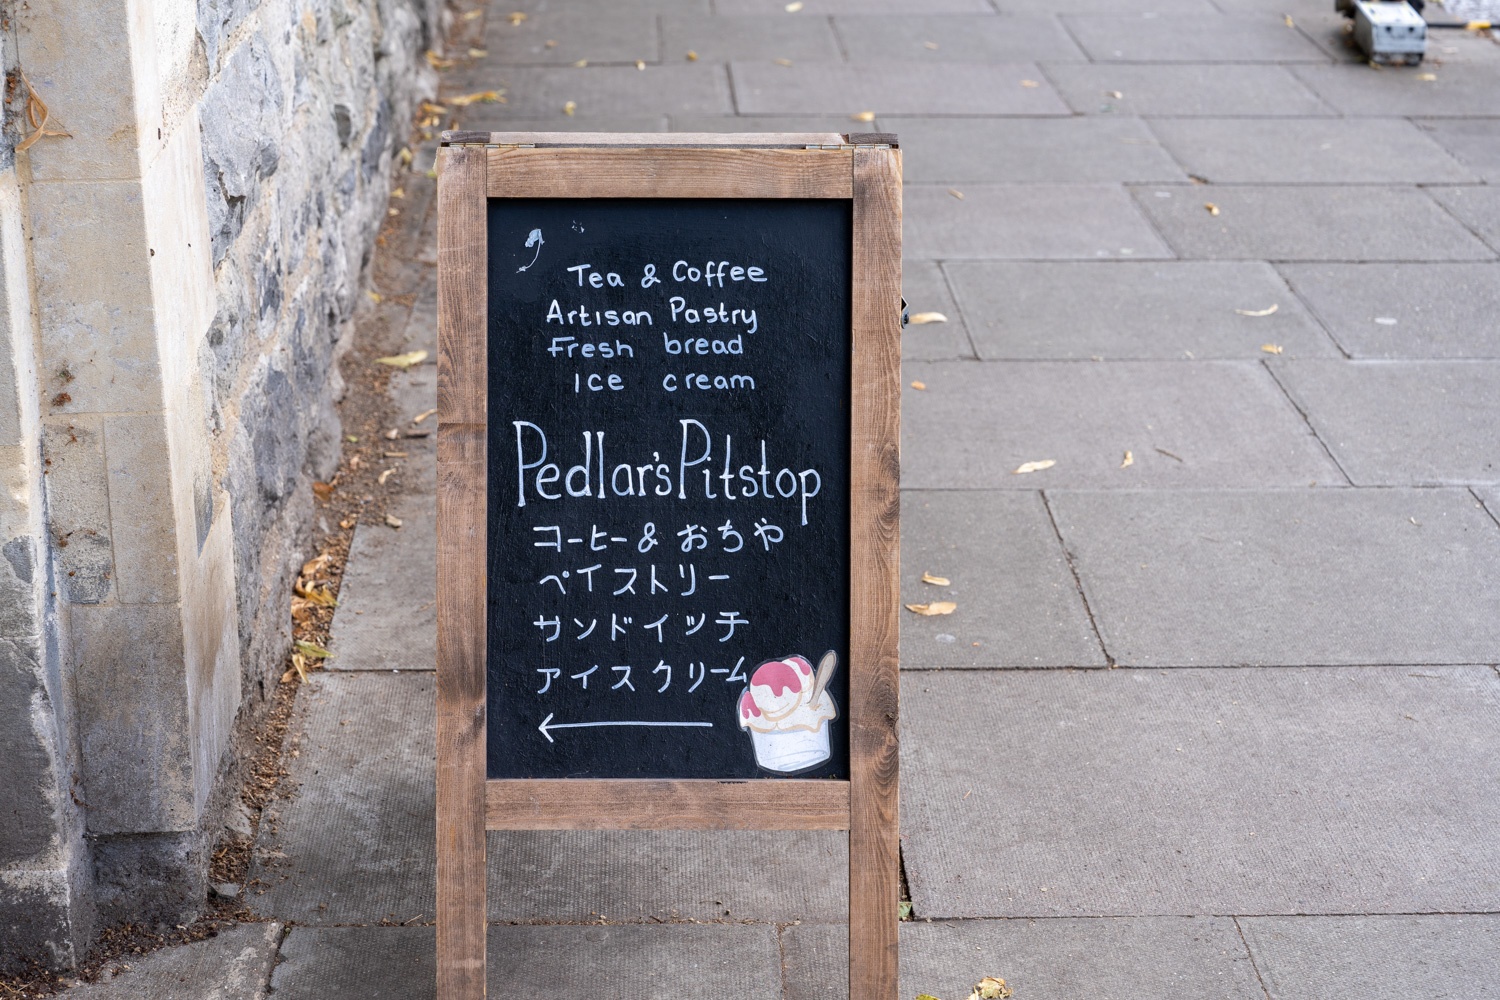 Tea & Coffee
Artisan Pastry
Fresh bread
Ice cream
Pedlar's Pitstop
コーヒー & おちや
ペイストリー
サンドイッチ
アイスクリーム